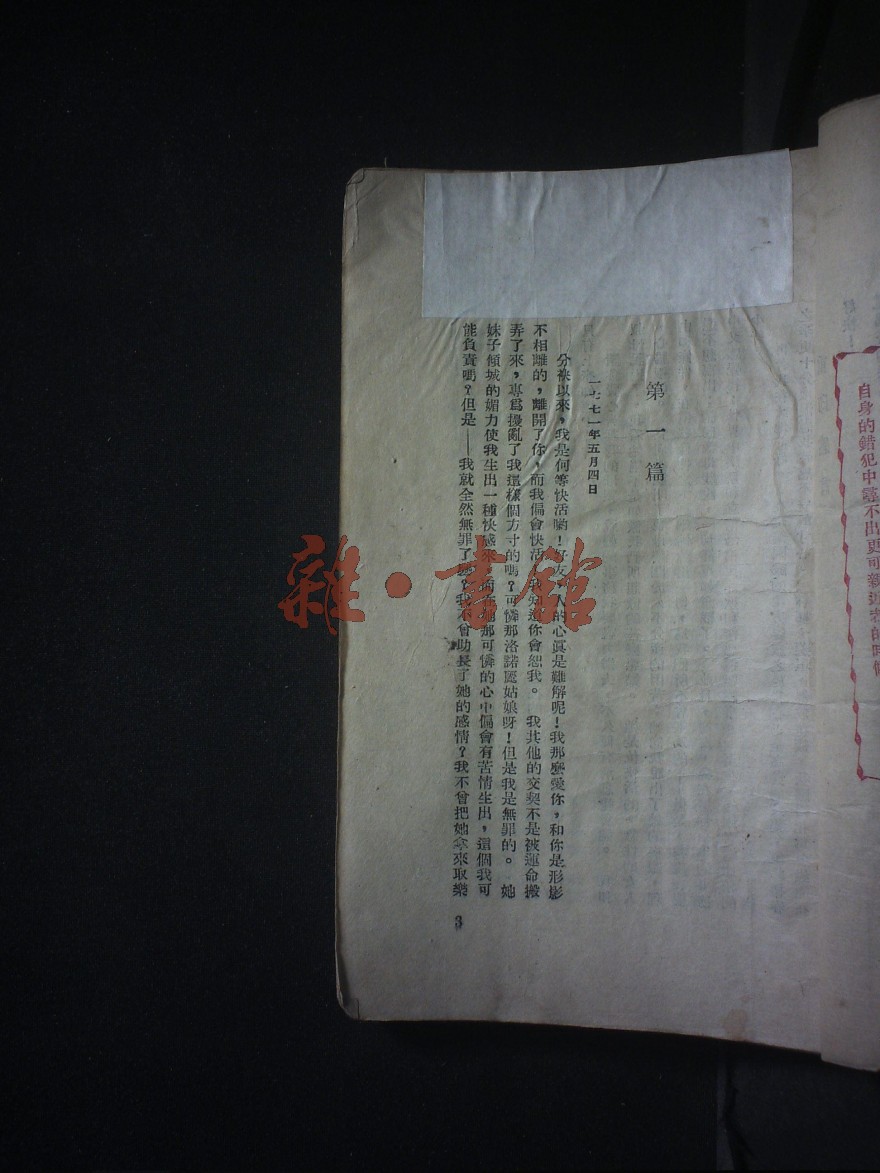 自身的錯犯中尋不出更可親近者的時候
第一篇
一七七一年五月四日
分袂以來，我是何等快活喲！好友，人的心眞是難解呢！我那麼愛你，和你是形影
不相離的，離開了你，而我偏會快活！我知道你會恕我。我其他的交契不是被運命搬
弄了來，專爲擾亂了我這樣個方寸的嗎？可憐那洛諾麗姑娘呀！但是我是無罪的。她
妹子傾城的媚力使我生出一種快感來，而在她那可憐的心中偏會有苦情生出，這個我可
能負責嗎？但是——我就全然無罪了嗎？我不曾助長了她的感情？我不曾把她拿來取樂
3
雜·書館